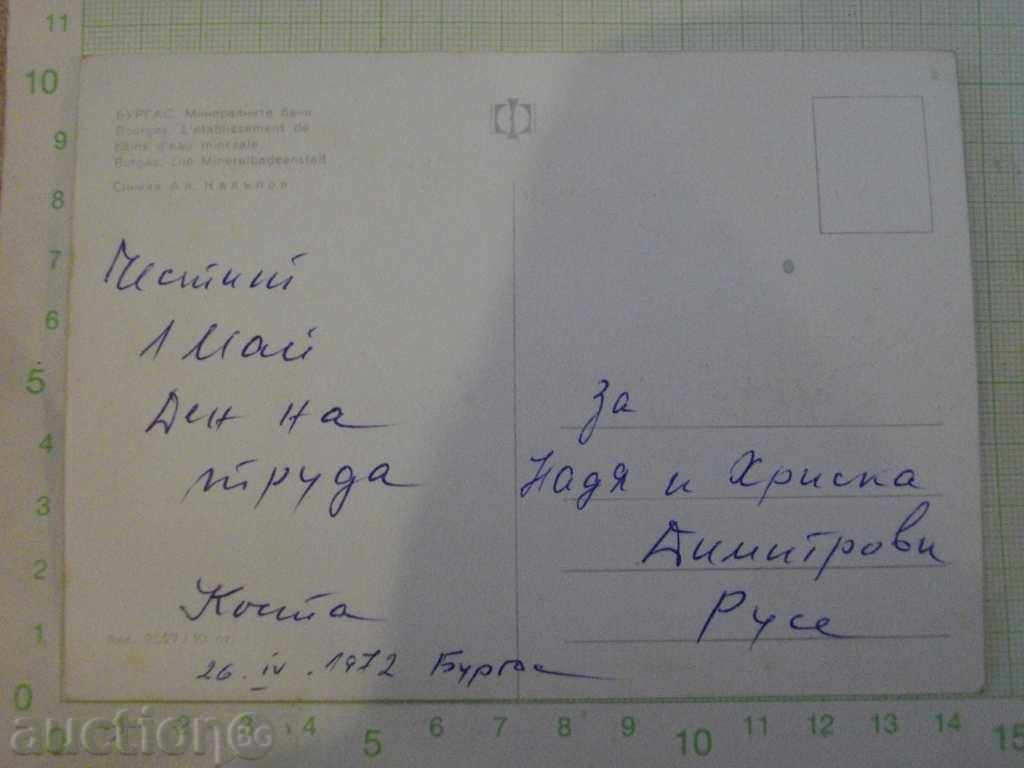 БУРГАС. Минералните бани
Bourgas. L'établissement de
bains d'eau minerale
Burgas. Die Mineralbadeanstalt
Снимка Ал. Кълъпов
Честит
1 Май
Ден на
труда
Коста
26. IV. 1972 Бургас
За
Надя и Христа
Димитрови
Русе
auction BG